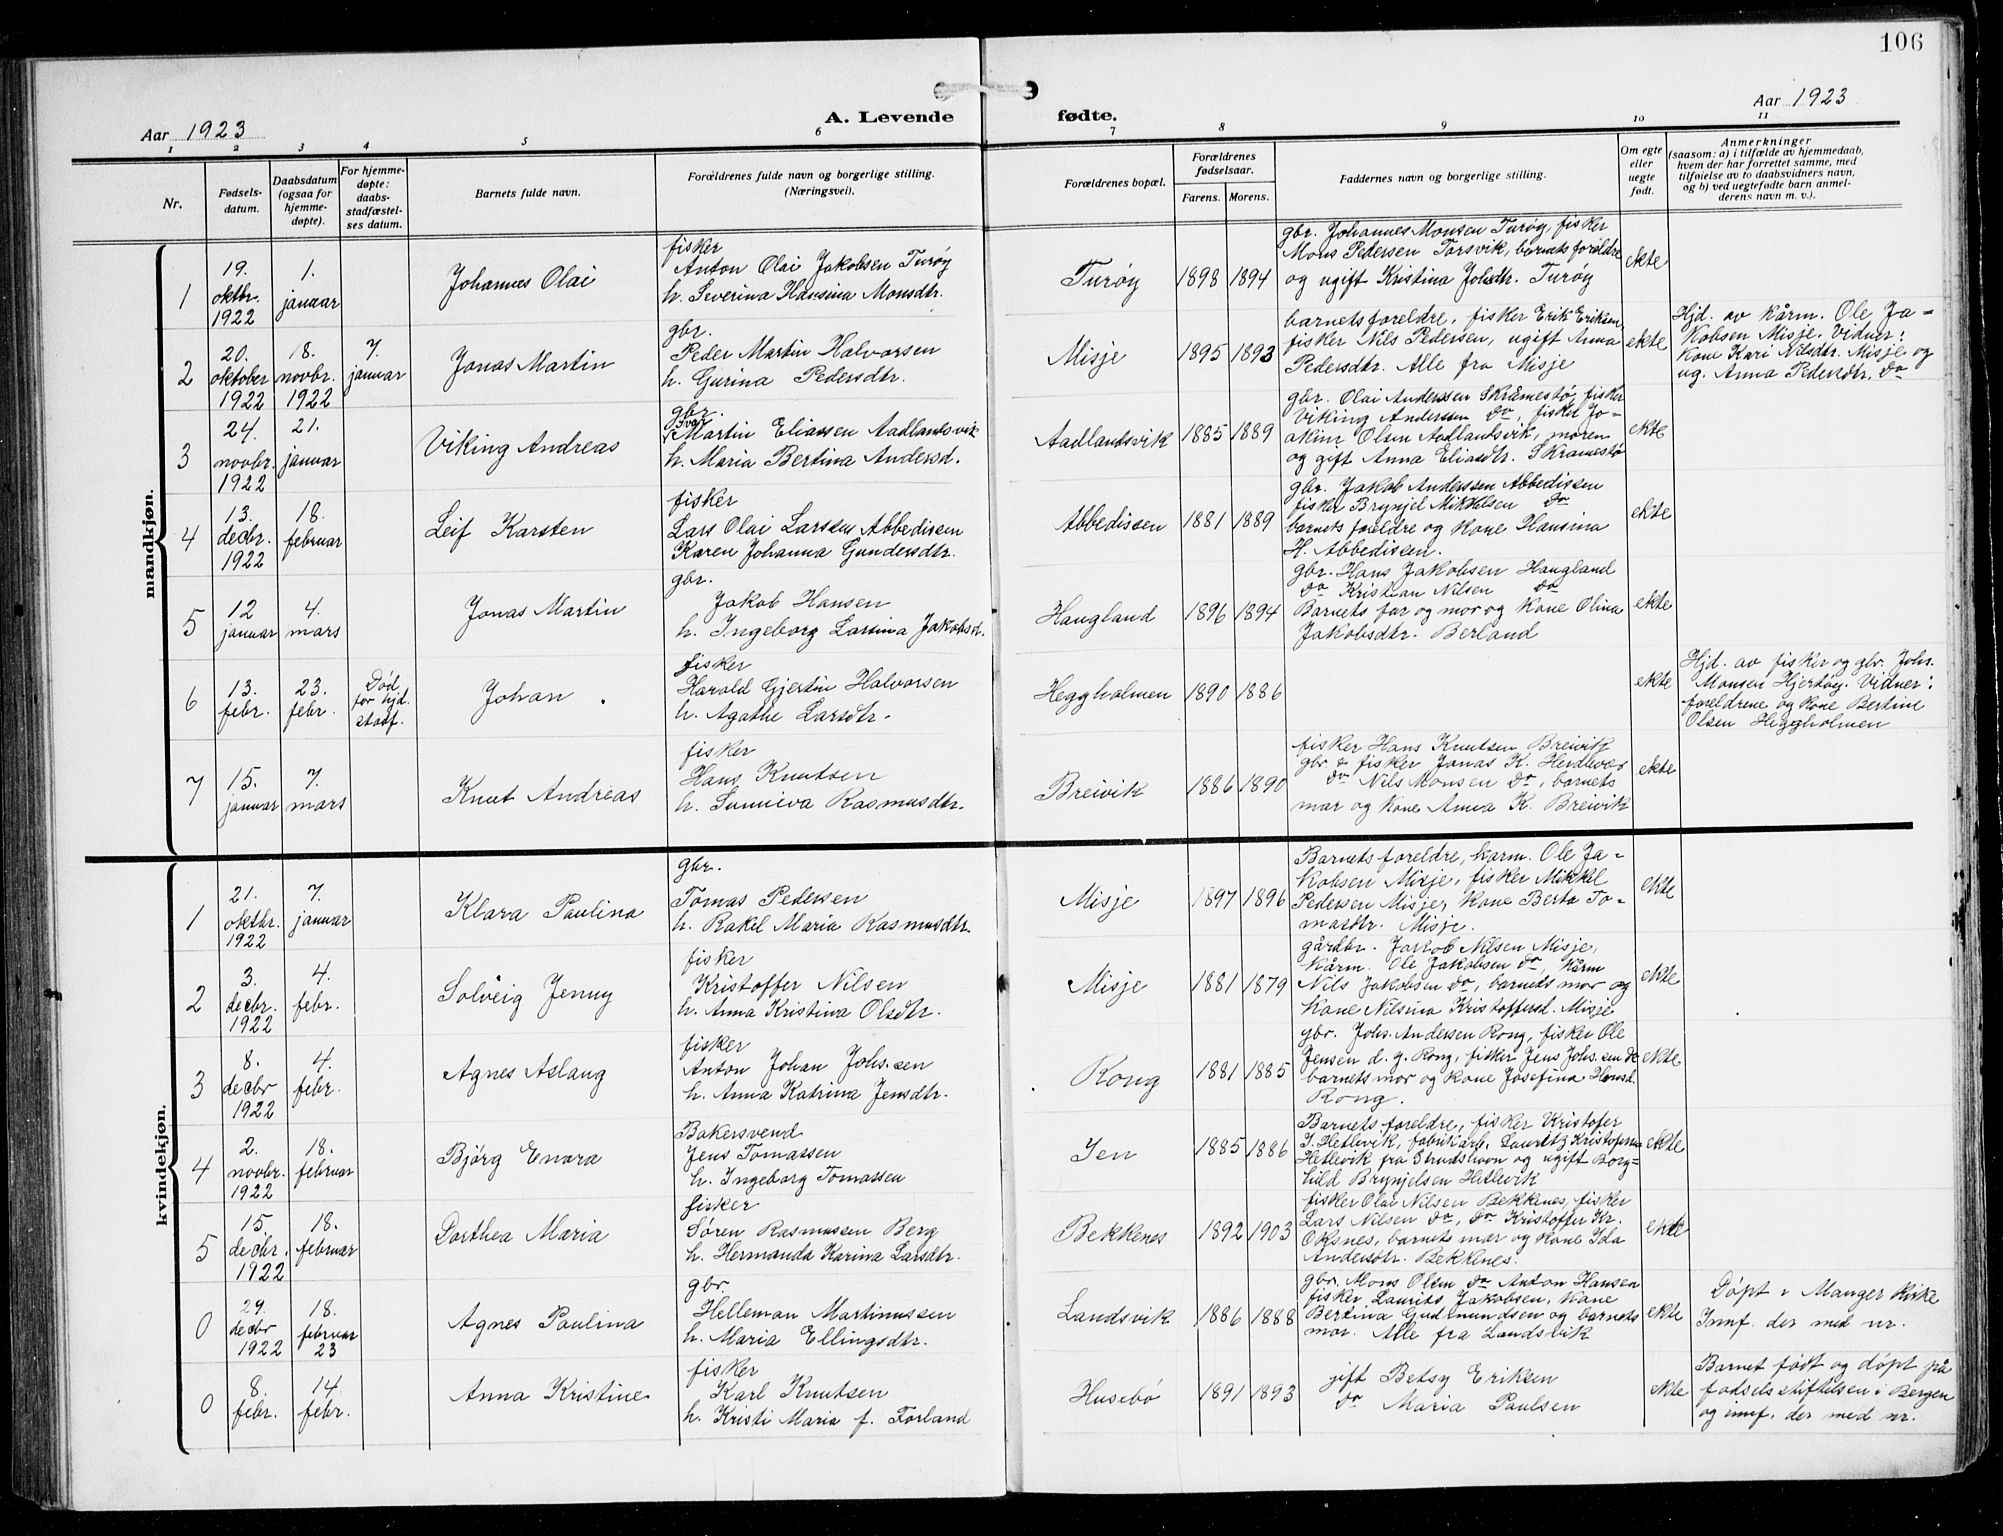 106
Aar 1923
A. Levende fødte.
Aar 1923
1 2 3 4 5 6 7 8 9 10 11
Nr.
Fødsels-
datum.
Daabsdatum
(ogsaa for
hjemme-
døpte).
For hjemme-
døpte:
daabs-
stadfæstel-
ses datum.
Barnets fulde navn.
Forældrenes fulde navn og borgerlige stilling.
(Næringsvei).
Forældrenes bopæl.
Forældrenes
fødselsaar.
Farens. Morens.
Faddernes navn og borgerlige stilling.
Om egte
eller
uegte
født.
Anmerkninger
(saasom: a) i tilfælde av hjemmedaab,
hvem der har forrettet samme, med
tilføielse av to daabsvidners navn,
og b) ved uegtefødte barn anmel-
derens navn m. v.).
mandkjøn.
1
19.
oktbr.
1922
1.
januar
Johannes Olai
fisker
Anton Olai Jakobsen Turøy
h. Severina Hansina Monsdtr.
Turøy
1898 1894
gbr. Johannes Monsen Turøy, fisker
Mons Pedersen Torsvik, barnets foreldre
og ugift Kristina Johsdtr. Turøy
ekte
2
20.
oktober
1922
18.
novbr.
1922
7.
januar
Jonas Martin
gbr.
Peder Martin Halvorsen
h. Gurina Pedersdtr.
Misje
1895 1893
barnets foreldre, fisker Erik Eriksen,
fisker Nils Pedersen, ugift Anna
Pedersdtr. Alle fra Misje
ekte
Hjd. av kårm. Ole Ja-
kobsen Misje. Vidner:
kone Kari Nilsdtr. Misje og
ug. Anna Pedersdtr. do
3
24.
novbr.
1922
21.
januar
Viking Andreas
gbr.
Martin Eliassen Aadlandsvik
h. Maria Bertina Andersd.
Aadlandsvik
1885 1889
gbr. Olai Anderssen Skråmestø, fisker
Viking Andersen do, fisker Jo-
akim Olsen Aadlandsvik, moren
og gift Anna Eliasdtr. Skramestø
ekte
4
13.
decbr.
1922
18.
februar
Leif Karsten
fisker
Lars Olai Larssen Abbedissen
Karen Johanna Gundersdtr.
Abbedissen
1881 1889
gbr. Jakob Anderssen Abbedissen
fisker Brynjel Mikkelsen do
barnets foreldre og kone Hansina
H. Abbedissen.
ekte
5
12
januar
4.
mars
Jonas Martin
gbr.
Jakob Hansen
h. Ingeborg Larsina Jakobsd.
Haugland
1896 1894
gbr. Hans Jakobsen Haugland
do Kristian Nilsen do
Barnets far og mor og kone Olina
Jakobsdtr. Berland
ekte
6
13.
febr.
23.
febr.
Død
før hjd.
stadf.
Johan
fisker
Harald Gjertin Halvorsen
h. Agathe Larsdtr.
Heggholmen
1890 1886
ekte
Hjd. av fisker og gbr. Johs.
Monsen Hjertøy. Vidner:
foreldrene og kone Bertine
Olsen Heggholmen
7
15.
januar
7.
mars
Knut Andreas
fisker
Hans Knutsen
h. Sunnieva Rasmusdtr.
Breivik
1886 1890
fisker Hans Knutsen Breivik
gbr. & fisker Jonas K. Herdlevær
do Nils Monsen do, barnets
mor og kone Anna K. Breivik
ekte
kvindekjøn.
1
21.
oktbr.
1922
7.
januar
Klara Paulina
gbr.
Tomas Pedersen
h. Rakel Maria Rasmusdtr.
Misje
1897 1896
Barnets foreldre, karm. Ole Ja-
kobsen Misje, fisker Mikkel
Pedersen Misje, kone Berta To-
masdtr. Misje.
ekte
2
3.
decbr.
1922
4.
febr.
Solveig Jenny
fisker
Kristoffer Nilsen
h. Anna Kristina Olsdtr.
Misje
1881 1879
gårdbr. Jakob Nilsen Misje,
kårm. Ole Jakobsen do, kårm
Nils Jakobsen do, barnets mor og
kone Nilsina Kristoffersd. Misje
ekte
3
8.
decbr
1922
4.
febr.
Agnes Aslaug
fisker
Anton Johan Johs.sen
h. Anna Katrina Jensdtr.
Rong
1881 1885
gbr. Johs. Andersen Rong, fisker Ole
Jensen d. y. Rong, fisker Jens Johs.sen do
barnets mor og kone Josefina Hansd.
Rong.
ekte
4
2.
novbr.
1922
18.
februar
Bjørg Enora
Bakersvend
Jens Tomassen
h. Ingeborg Tomassen
Jen
1885 1886
Barnets foreldre, fisker Kristofer
J. Hetlevik, fabrikarb. Lauritz Kristofersen
Hetlevik fra Strudshavn og ugift Borg-
hild Brynjelsen Hetlevik
ekte
5
15.
decbr.
1922
18.
februar
Dorthea Maria
fisker
Søren Rasmussen Berg
h. Hermanda Karina Larsdtr.
Bekkenes
1892 1903
fisker Olai Nilsen Bekkenes, fisker
Lars Nilsen do, do Kristoffer Kr.
Oksnes, barnets mor og kone Ida
Andersdtr. Bekkenes.
ekte
0
29.
decbr
1922
18.
februar
23
Agnes Paulina
gbr.
Helleman Martinussen
h. Maria Ellingsdtr.
Landsvik
1886 1888
gbr. Mons Olsen do Anton Hansen
fisker Laurits Jakobsen, kone
Bertina Gudmundsen og barnets
mor. Alle fra Landsvik
ekte
Døpt i Manger kirke
Innf. der med nr.
0
8.
febr.
14
febr.
Anna Kristine
fisker
Karl Knutsen
h. Kristi Maria f. Forland
Husebø
1891 1893
gift Betsy Eriksen
do Maria Paulsen
ekte
Barnet født og døpt på
fødselsstiftelsen i Bergen
og innf. der med nr.